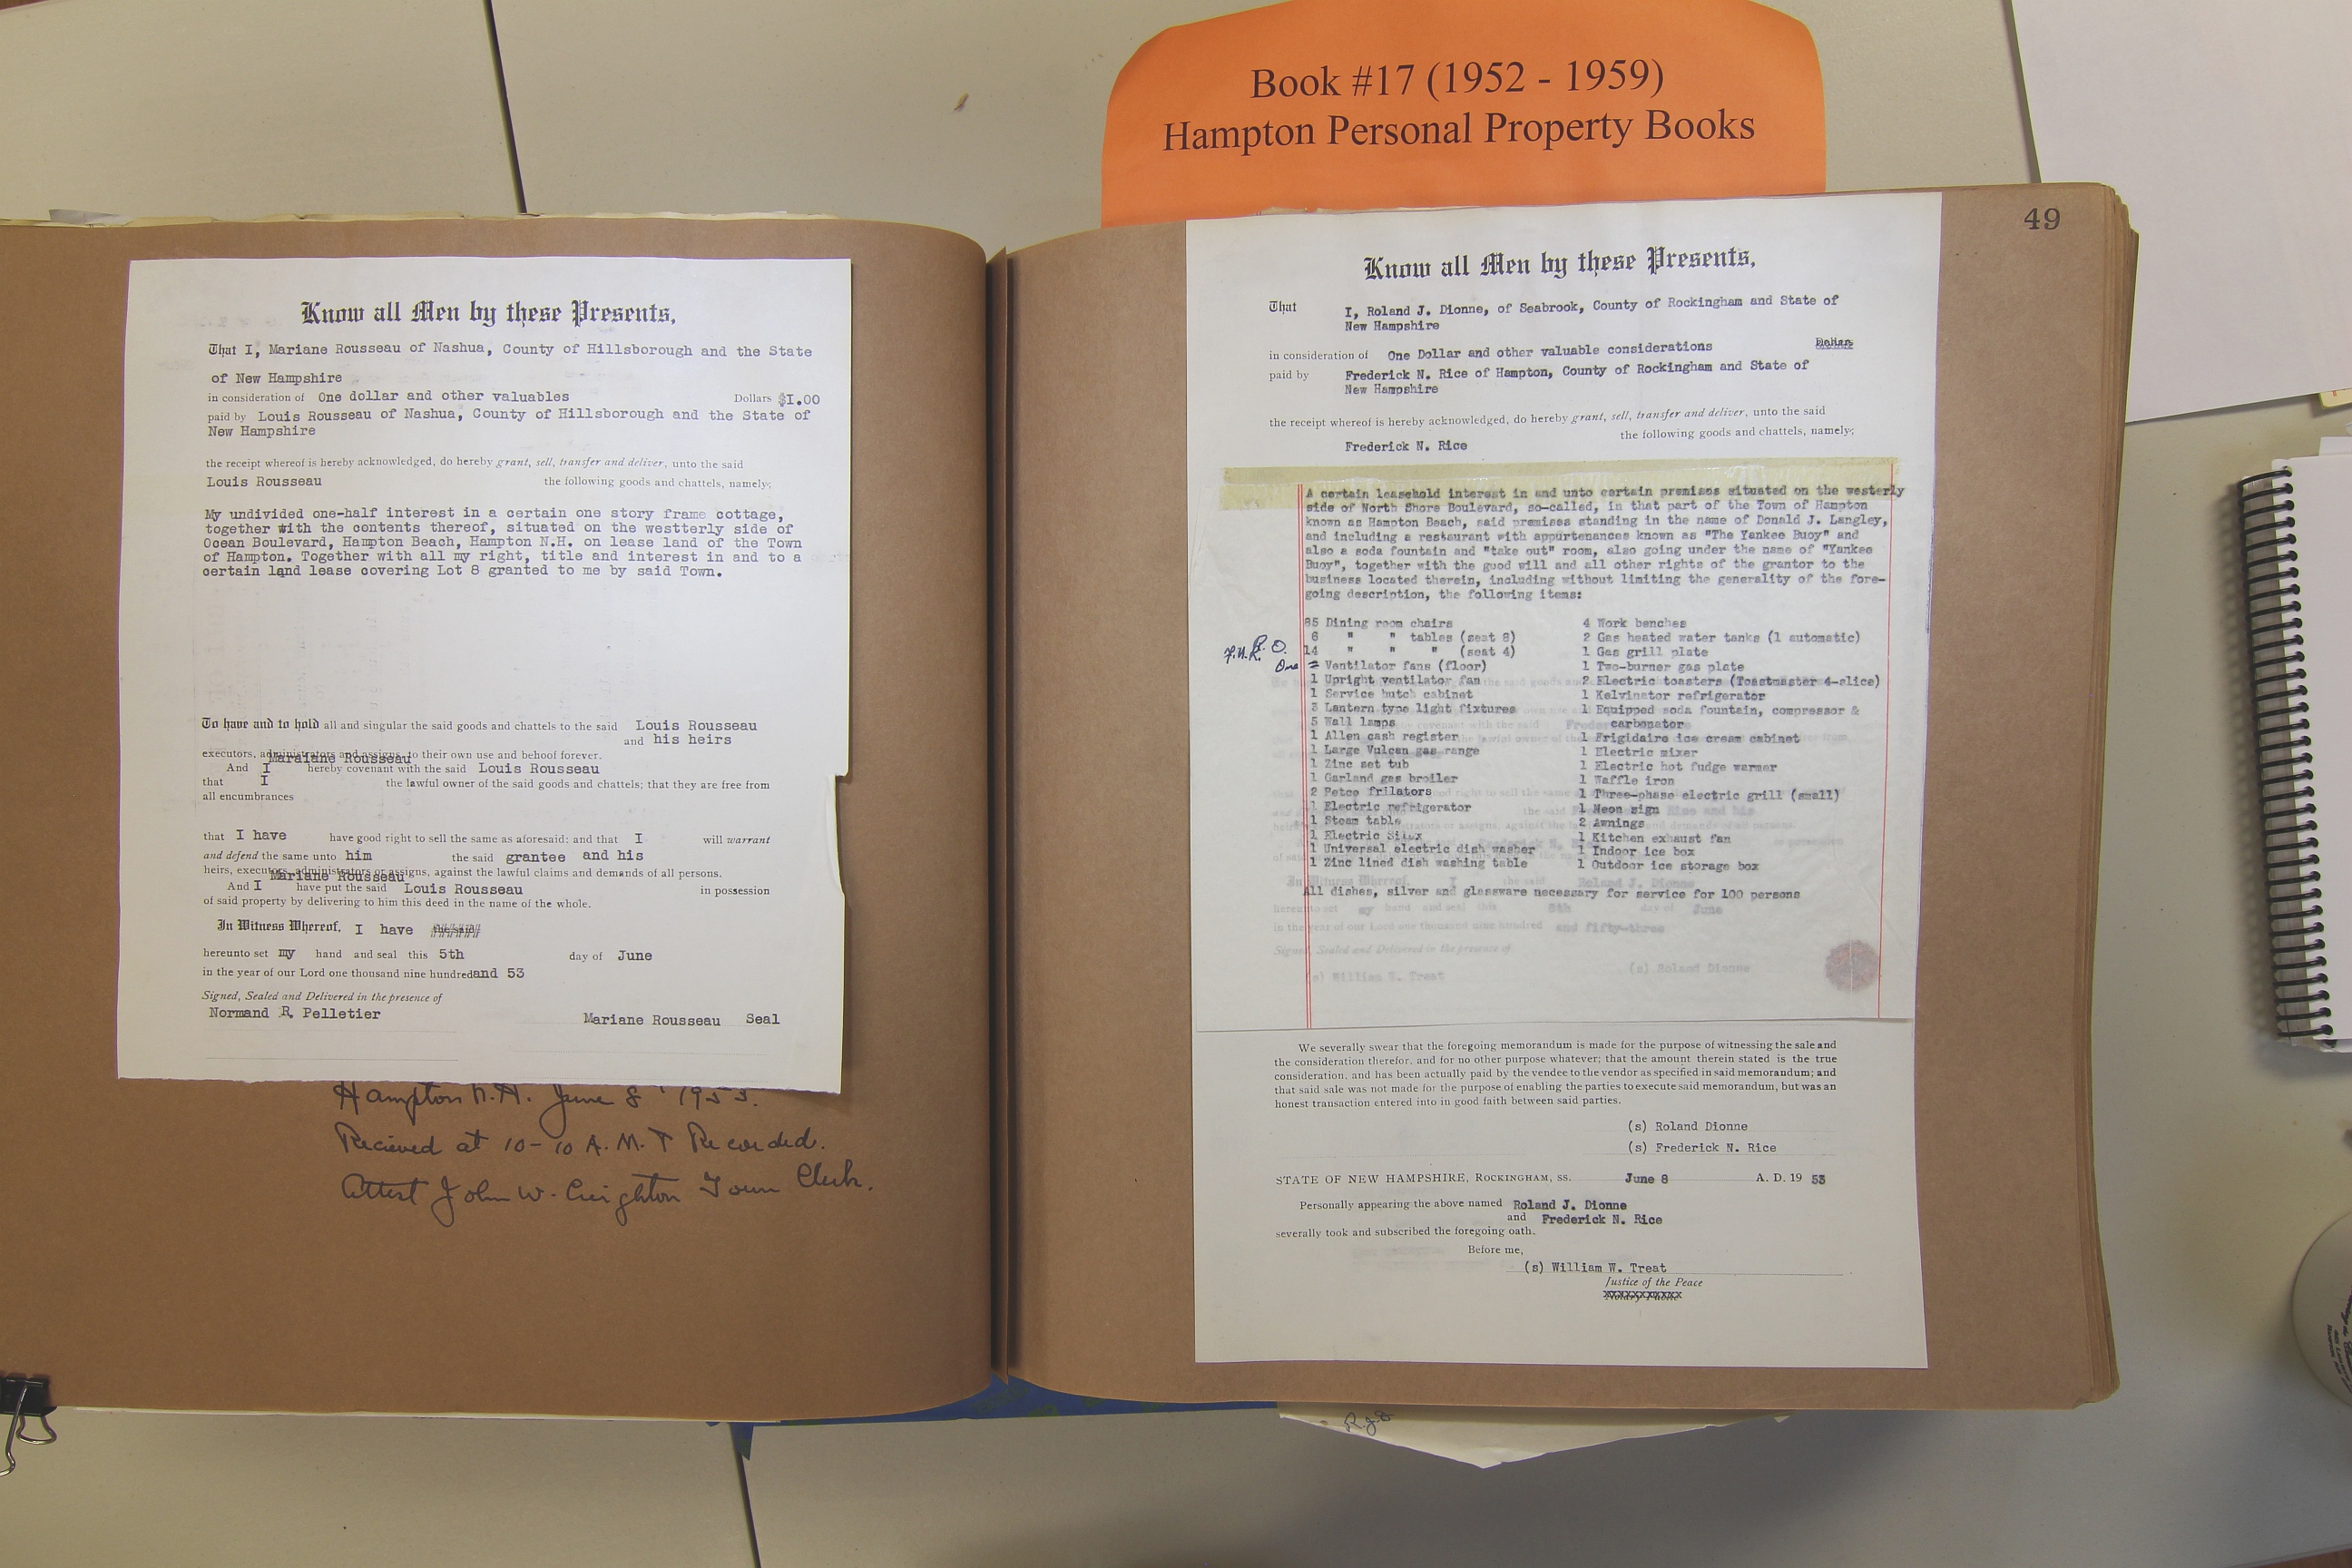 Book #17 (1952 - 1959)
Hampton Personal Property Books
Know all Men by these Presents,
That I, Mariane Rousseau of Nashua, County of Hillsborough and the State
of New Hampshire
in consideration of One dollar and other valuables Dollars $1.00
paid by Louis Rousseau of Nashua, County of Hillsborough and the State of
New Hampshire
the receipt whereof is hereby acknowledged, do hereby grant, sell, transfer and deliver, unto the said
Louis Rousseau the following goods and chattels, namely;
My undivided one-half interest in a certain one story frame cottage,
together with the contents thereof, situated on the westterly side of
Ocean Boulevard, Hampton Beach, Hampton N.H. on lease land of the Town
of Hampton. Together with all my right, title and interest in and to a
certain land lease covering Lot 8 granted to me by said Town.
To have and to hold all and singular the said goods and chattels to the said Louis Rousseau
and his heirs
executors, administrators and assigns, to their own use and behoof forever.
Maraiane Rousseau
And I hereby covenant with the said Louis Rousseau
that I the lawful owner of the said goods and chattels; that they are free from
all encumbrances
that I have have good right to sell the same as aforesaid: and that I will warrant
and defend the same unto him the said grantee and his
heirs, executors, administrators or assigns, against the lawful claims and demands of all persons.
Mariane Rousseau
And I have put the said Louis Rousseau in possession
of said property by delivering to him this deed in the name of the whole.
In Witness Whereof, I have
hereunto set my hand and seal this 5th day of June
in the year of our Lord one thousand nine hundred and 53
Signed, Sealed and Delivered in the presence of
Normand R. Pelletier
Mariane Rousseau Seal
Hampton N.H. June 8 1953.
Recieved at 10-10 A.M. & Recorded.
Attest John W. Creighton Town Clerk.
49
Know all Men by these Presents,
That I, Roland J. Dionne, of Seabrook, County of Rockingham and State of
New Hampshire
in consideration of One Dollar and other valuable considerations Dollars
paid by Frederick N. Rice of Hampton, County of Rockingham and State of
New Hampshire
the receipt whereof is hereby acknowledged, do hereby grant, sell, transfer and deliver, unto the said
Frederick N. Rice the following goods and chattels, namely;
A certain leasehold interest in and unto certain premises situated on the westerly
side of North Shore Boulevard, so-called, in that part of the Town of Hampton
known as Hampton Beach, said premises standing in the name of Donald J. Langley,
and including a restaurant with appurtenances known as "The Yankee Buoy" and
also a soda fountain and "take out" room, also going under the name of "Yankee
Buoy", together with the good will and all other rights of the grantor to the
business located therein, including without limiting the generality of the fore-
going description, the following items:
85 Dining room chairs
6 " " tables (seat 8)
14 " " " (seat 4)
One Ventilator fans (floor)
1 Upright ventilator fan
1 Service hutch cabinet
3 Lantern type light fixtures
5 Wall lamps
1 Allen cash register
1 Large Vulcan gas range
1 Zinc set tub
1 Garland gas broiler
2 Petco frilators
1 Electric refrigerator
1 Steam table
1 Electric Silex
1 Universal electric dish washer
1 Zinc lined dish washing table
4 Work benches
2 Gas heated water tanks (1 automatic)
1 Gas grill plate
1 Two-burner gas plate
2 Electric toasters (Toastmaster 4-slice)
1 Kelvinator refrigerator
1 Equipped soda fountain, compressor &
carbonator
1 Frigidaire ice cream cabinet
1 Electric mixer
1 Electric hot fudge warmer
1 Waffle iron
1 Three-phase electric grill (small)
1 Neon sign
2 Awnings
1 Kitchen exhaust fan
1 Indoor ice box
1 Outdoor ice storage box
All dishes, silver and glassware necessary for service for 100 persons
In Witness Whereof, I the said Roland J. Dionne
hereunto set my hand and seal this 8th day of June
in the year of our Lord one thousand nine hundred and fifty-three
Signed, Sealed and Delivered in the presence of
(s) William W. Treat (s) Roland Dionne
We severally swear that the foregoing memorandum is made for the purpose of witnessing the sale and
the consideration therefor, and for no other purpose whatever; that the amount therein stated is the true
consideration, and has been actually paid by the vendee to the vendor as specified in said memorandum; and
that said sale was not made for the purpose of enabling the parties to execute said memorandum, but was an
honest transaction entered into in good faith between said parties.
(s) Roland Dionne
(s) Frederick N. Rice
STATE OF NEW HAMPSHIRE, ROCKINGHAM, SS. June 8 A. D. 19 53
Personally appearing the above named Roland J. Dionne
and Frederick N. Rice
severally took and subscribed the foregoing oath.
Before me,
(s) William W. Treat
Justice of the Peace
Notary Public